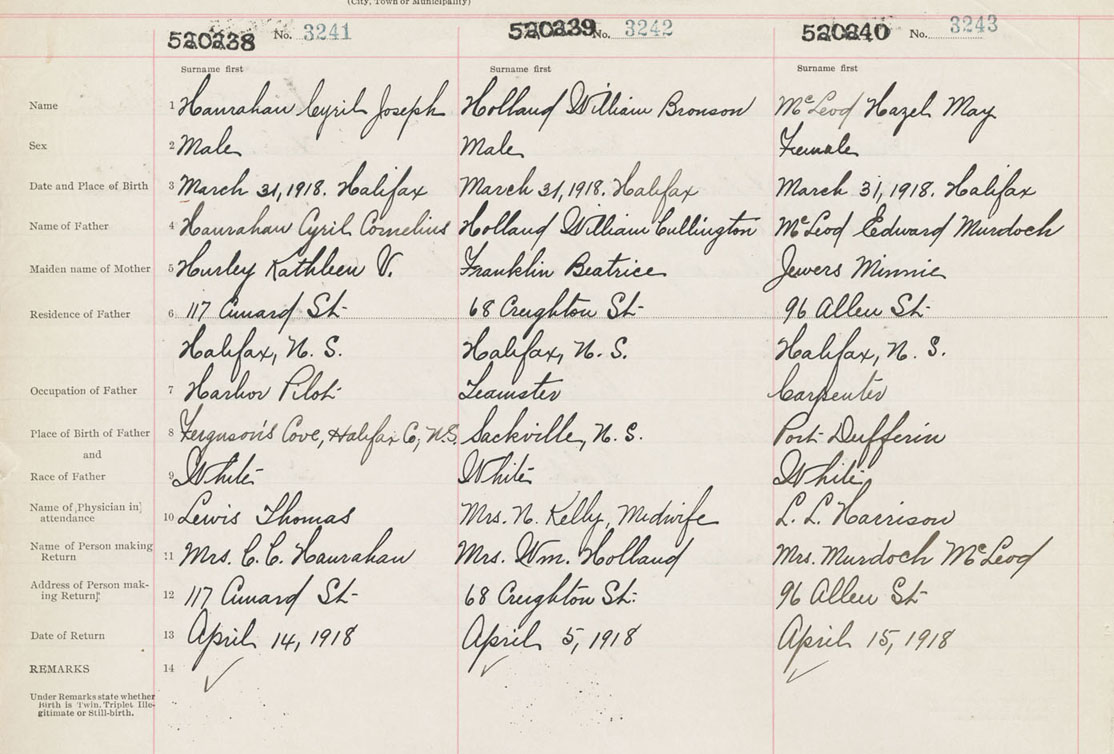 (City, Town or Municipality)
520238 No. 3241 520239 No. 3242 520240 No. 3243
Surname first Surname first Surname first
Name 1 Hanrahan Cyril Joseph Holland William Bronson McLeod Hazel May
Sex 2 Male Male Female
Date and Place of Birth 3 March 31, 1918. Halifax March 31, 1918. Halifax March 31, 1918. Halifax
Name of Father 4 Hanrahan Cyril Cornelius Holland William Cullington McLeod Edward Murdoch
Maiden name of Mother 5 Hurley Kathleen V. Franklin Beatrice Jewers Minnie
Residence of Father 6 117 Cunard St- 68 Creighton St- 96 Allen St-
Halifax, N. S. Halifax, N. S. Halifax, N. S.
Occupation of Father 7 Harbor Pilot Teamster Carpenter
Place of Birth of Father 8 Ferguson's Cove, Halifax Co, N.S. Sackville, N. S. Port Dufferin
and
Race of Father 9 White White White
Name of Physician in attendance 10 Lewis Thomas Mrs. N. Kelly, Midwife L. L. Harrison
Name of Person making Return 11 Mrs. C. C. Hanrahan Mrs. Wm. Holland Mrs. Murdoch McLeod
Address of Person making Return 12 117 Cunard St- 68 Creighton St. 96 Allen St-
Date of Return 13 April 14, 1918 April 5, 1918 April 15, 1918
REMARKS 14
Under Remarks state whether
Birth is Twin, Triplet Ille-
gitimate or Still-birth.